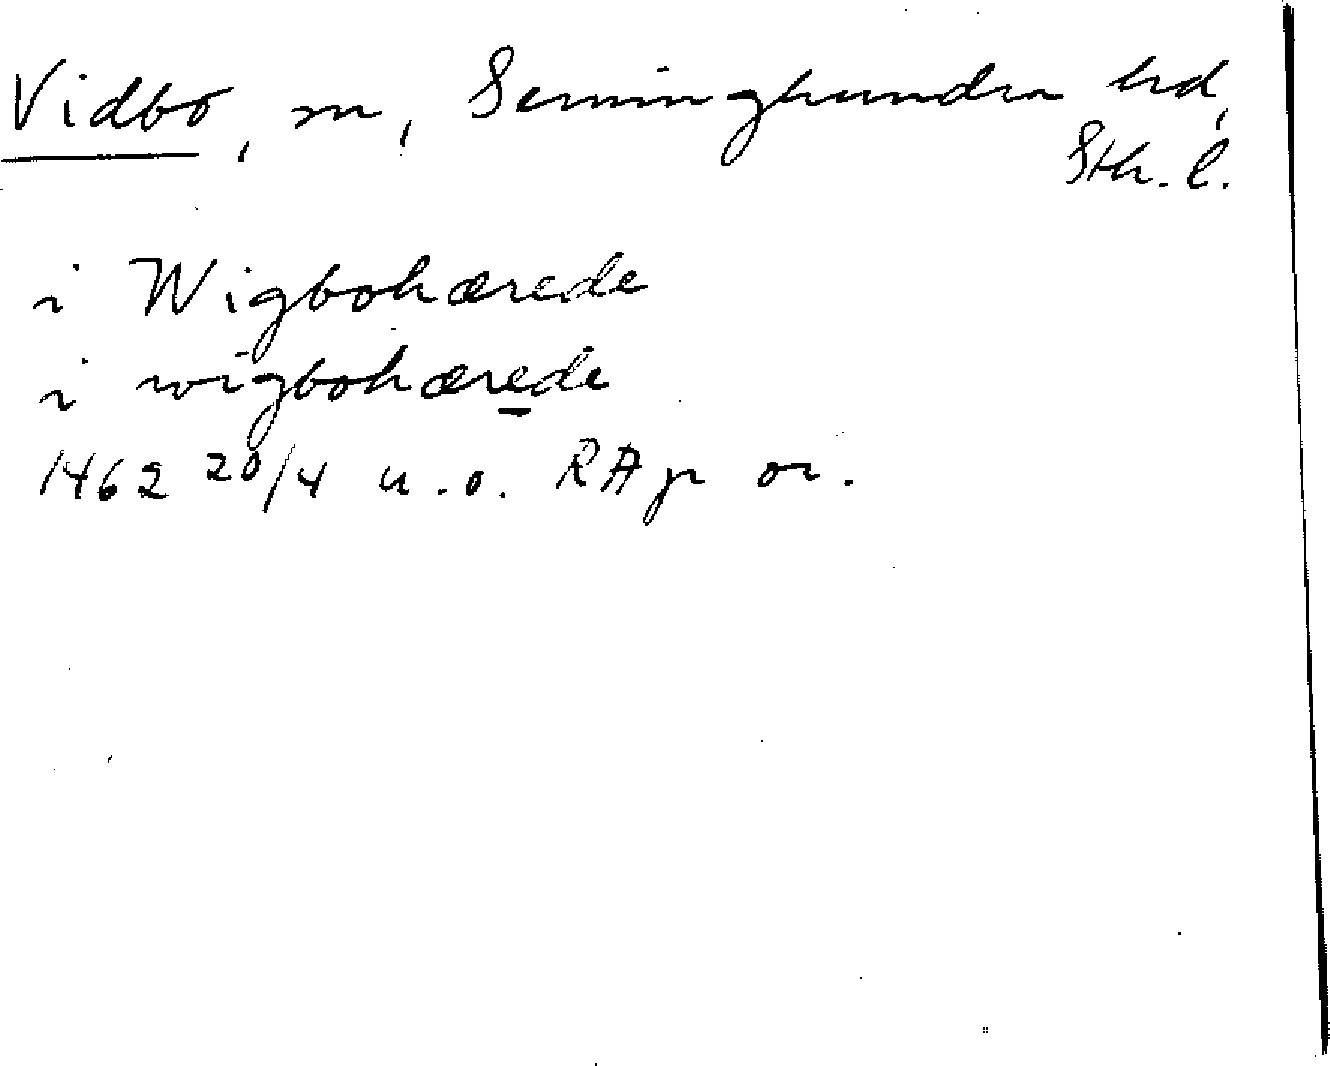 Vidbo, sn, Seminghundra hd,
Sth. l.
i Wigbohærede
i wigbohærede
1462 20/4 u.o. RAp or.